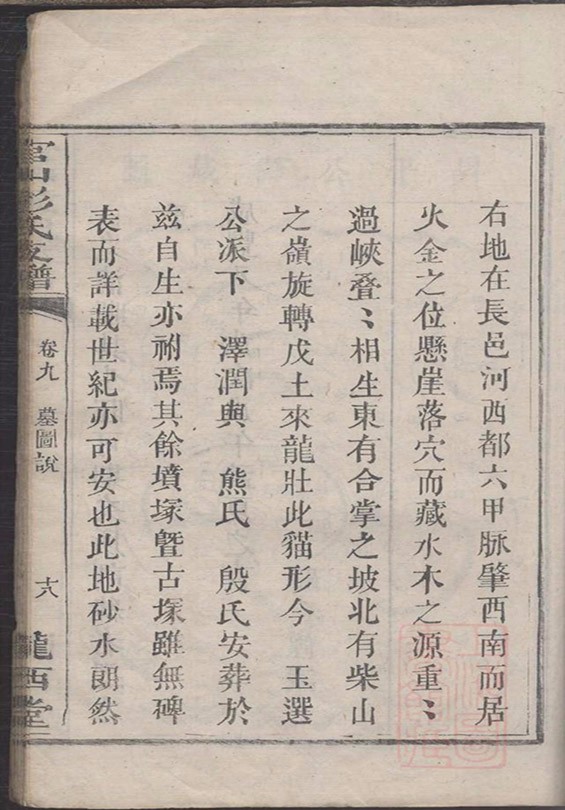 右地在長邑河西都六甲脈肇西南而居
火金之位懸崖落穴而藏水木之源重〻
過峽叠〻相生東有合掌之坡北有柴山
之嶺旋轉戊土來龍壯此貓形今 玉選
公派下 澤潤與 熊氏 殷氏安葬於
兹自生亦祔焉其餘墳塚曁古塚雖無碑
表而詳載世紀亦可安也此地砂水朗然
官山彭氏支譜
卷九 墓圖說
十八
隴西堂